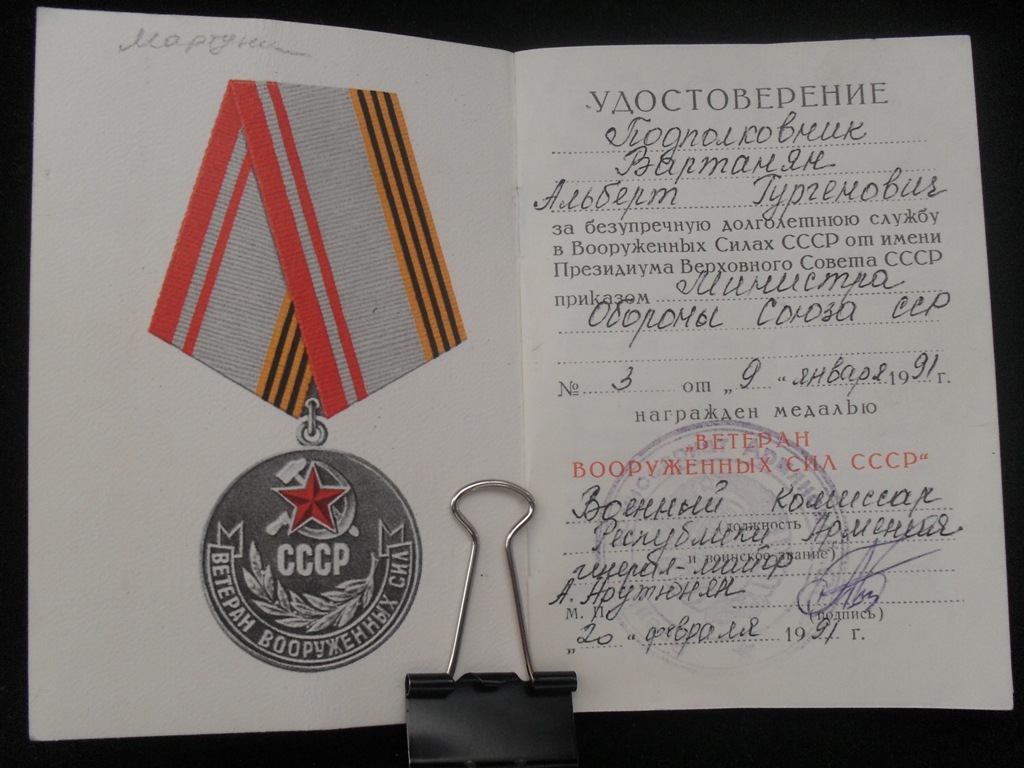 Мартуни
СССР
ВЕТЕРАН ВООРУЖЕННЫХ СИЛ
УДОСТОВЕРЕНИЕ
Подполковник
Вартанян
Альберт Гургенович
за безупречную долголетнюю службу
в Вооруженных Силах СССР от имени
Президиума Верховного Совета СССР
приказом Министра
Обороны Союза ССР
№ 3 от „9“ января 1991 г.
награжден медалью
„ВЕТЕРАН
ВООРУЖЕННЫХ СИЛ СССР“
Военный комиссар
(должность
Республики Армения
и воинское звание)
генерал-майор
А. Арутюнян
М. П.
(подпись)
„20“ февраля 1991 г.